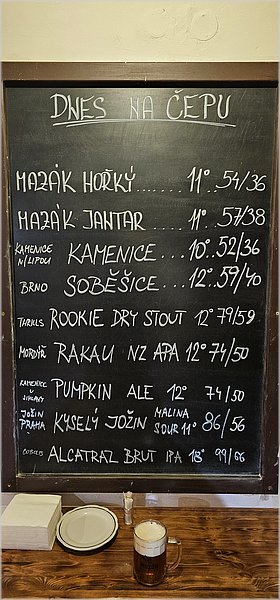 DNES NA ČEPU
MAZÁK HOŘKÝ....... 11° 54/36
MAZÁK JANTAR ..... 11° 57/38
KAMENICE N/LIPOU KAMENICE... 10° 52/36
BRNO SOBĚŠICE.... 12° 59/40
ROOKIE DRY STOUT 12° 79/59
MORDÝŘ RAKAU NZ APA 12° 74/50
KAMENICE PUMPKIN ALE 12° 74/50
JOŽIN PRAHA KYSELÝ JOŽIN MALINA SOUR 11° 86/56
ALCATRAZ BRUT IPA 18° 99/66